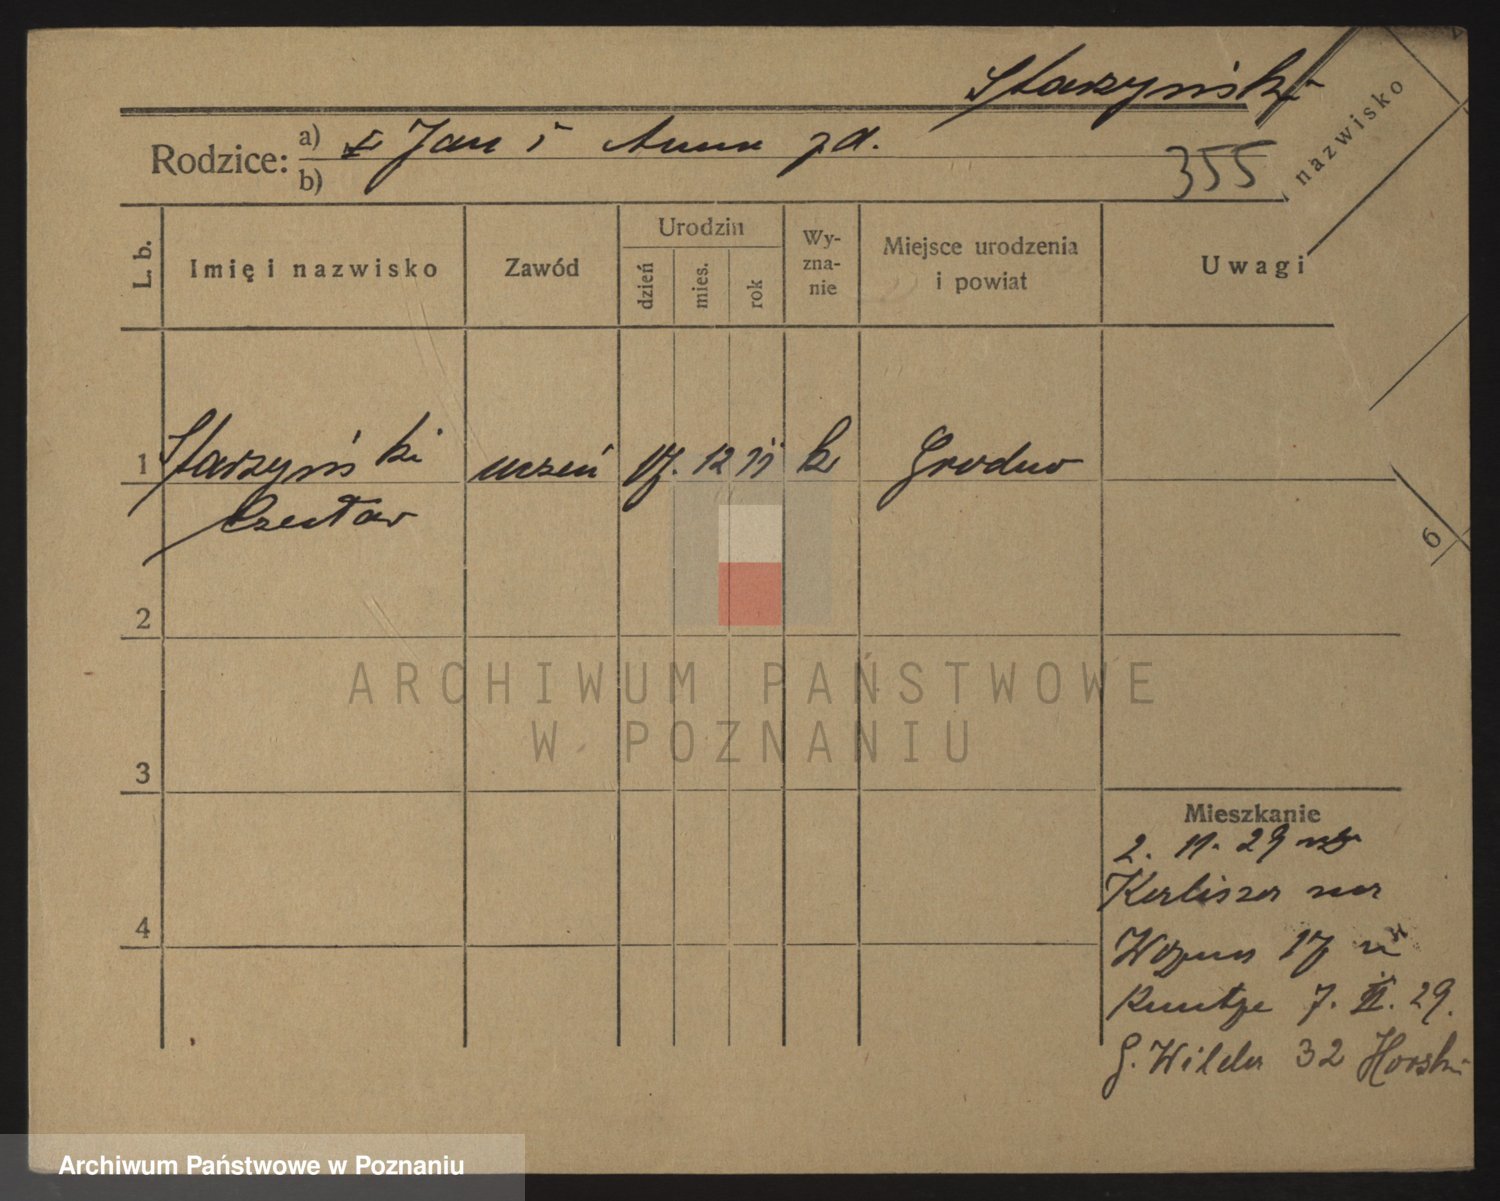 Starzyński
nazwisko
Rodzice: a) Jan i Anna
b)
355
L. b.
Imię i nazwisko
Zawód
Urodzin
dzień
mies.
rok
Wy-
zna-
nie
Miejsce urodzenia
i powiat
Uwagi
1 Starzyński uczeń 17. 12 11 k Grodno
Czesław
6
2
ARCHIWUM PAŃSTWOWE
W POZNANIU
3
Mieszkanie
2. 11. 29
4
17
7. II. 29.
G. Wilda 32
Archiwum Państwowe w Poznaniu